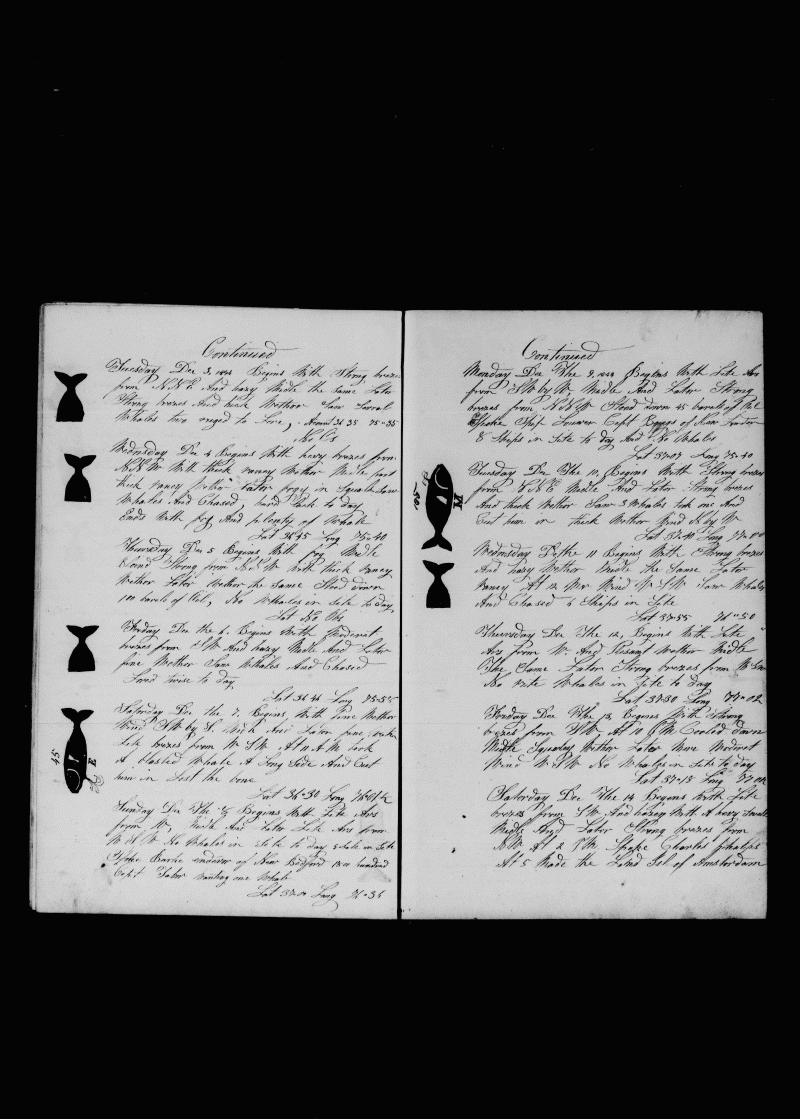 Continued
Tuesday Dec 3, 1844 Begins With Strong brezes
from N.N.E And hazy Midle the same Later
Strong brezes And thick Wether Saw Sevral
Whales two reged to Lore, Acount 36 35 75=35
No Obs
Wednsday Dec 4 Begins With heavy brezes from
N.N.W With thick raney Wether Midle part
thick raney Later fogy in Squals Saw
Whales And Chased, hard luck to day
Ends With fog And plenty of Whale
Lat 36 45 Long 75=40
Thursday Dec 5 Begins With fog Midle
Wind Strong from N.N.W With thick raney
Wether Later Wether the same Stod down
100 barels of Oil, No Whales in Site to day,
Lat No Obs
Friday Dec the 6. Begins With Moderat
brezes from S.W And hazy Midle And Later
fine Wether Saw Whales And Chased
Lored twise to day,
Lat 36 44 Long 75=55
45
E
Saturday Dec the 7, Begins With fine Wether
Wind S.W by S. Midle And Later fine Wether
Lite brezes from W.S.W At 11 A.M took
A blasted Whale A Long Side And Cut
him in Lost the bone
Lat 36=50 Long 76=01
Sunday Dec The 8 Begins With Lite Ars
from W, Midle And Later Lite Ars from
W.N.W No Whales in Site to day 5 Sale in Site
Spoke Barke endever of New Bedford 13 hundred
Capt Taber wanting one Whale
Lat 37=01 Long 76=36
Continued
Monday Dec The 9, 1844 Begins With Lite Ars
from S.W by W Midle And Later Strong
brezes from N.N.W Stood down 45 barels of Oil
Spoke Ship Capt of New London
8 Ships in Site to day And No Whales
Lat 37=07 Long 75=40
50
M
Tuesday Dec The 10, Begins With Strong brezes
from N.N.E Midle And Later Strong brezes
And thick Wether Saw 3 Whales took one And
Cut him in thick Wether Wind N by W
Lat 37=40 Long 77=00
Wednsday Dec the 11 Begins With Strong brezes
And Hazy Wether Midle the Same Later
raney At 12 Mer Wind W.S.W Saw Whales
And Chased 6 Ships in Site
Lat 37=55 76=50
Thursday Dec The 12, Begins With Lite
Ars from W. And Plesant Wether Midle
The Same Later Strong brezes from W.S.W
No rite Whales in Site to day
Lat 37=50 Long 77=02
Friday Dec The 13, Begins With Strong
brezes from S.W At 10 P.M Cooled down
Midle Squaley Wether Later More Moderat
Wind W.S.W No Whales in Site to day
Lat 37=13 Long 77
Saturday Dec The 14 Begins With Lite
brezes from S.W And hazey With A hevy Swell
Midle And Later Strong brezes from
N.W At 2 P.M Spoke Charles Phelps
At 5 Made the Land Isl of Amsterdam